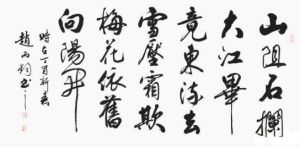 山阻石攔
大江畢
竟東流去
雪壓霜欺
梅花依舊
向陽開
時在丁酉新春
趙雨鈞书